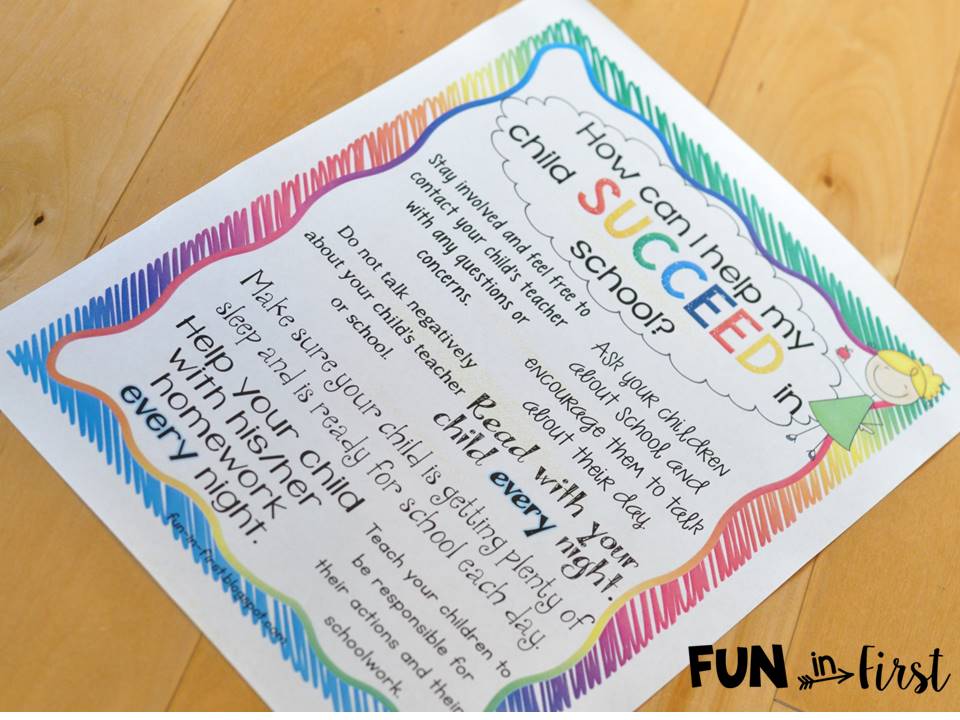 How can I help my
child SUCCEED in
school?
Stay involved and feel free to
contact your child's teacher
with any questions or
concerns.
Ask your children
about school and
encourage them to talk
about their day
Do not talk negatively
about your child's teacher
or school.
Read with your
child every night.
Make sure your child is getting plenty of
sleep and is ready for school each day.
Help your child
with his/her
homework
every night.
Teach your children to
be responsible for
their actions and their
schoolwork.
fun-in-first.blogspot.com
FUN in First